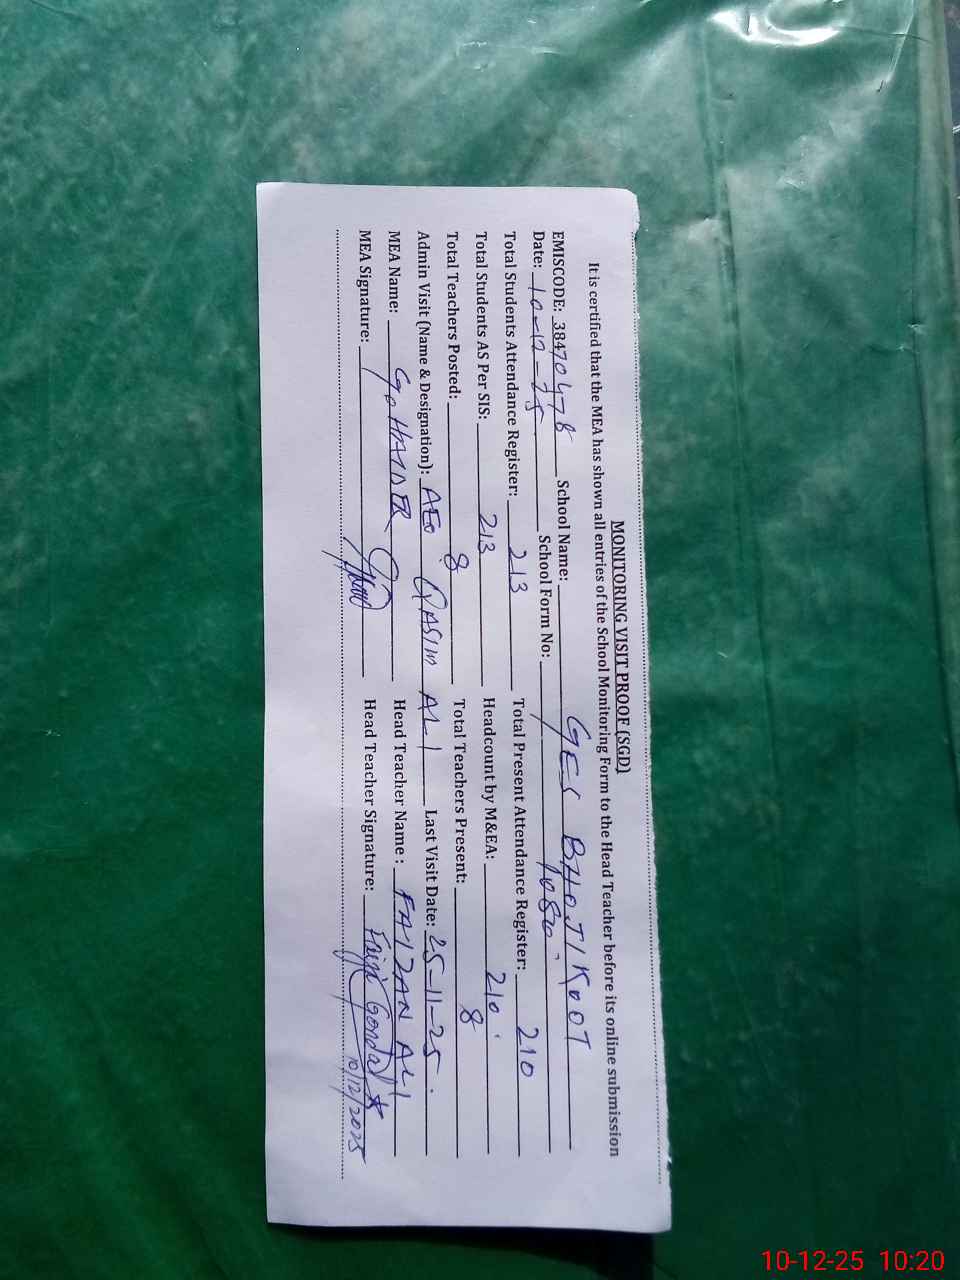 MONITORING VISIT PROOF (SGD)
It is certified that the MEA has shown all entries of the School Monitoring Form to the Head Teacher before its online submission
EMISCODE: 38470478 School Name: GES BHOTI KOOT
Date: 10-12-25 School Form No:
Total Students Attendance Register: 213 Total Present Attendance Register: 210
Total Students AS Per SIS: 213 Headcount by M&EA: 210
Total Teachers Posted: 8 Total Teachers Present: 8
Admin Visit (Name & Designation): AEO QASIM ALI Last Visit Date: 25-11-25
MEA Name: HAIDER Head Teacher Name : FAIZAN ALI
MEA Signature: Head Teacher Signature: Gondal
10/12/2025
10-12-25 10:20